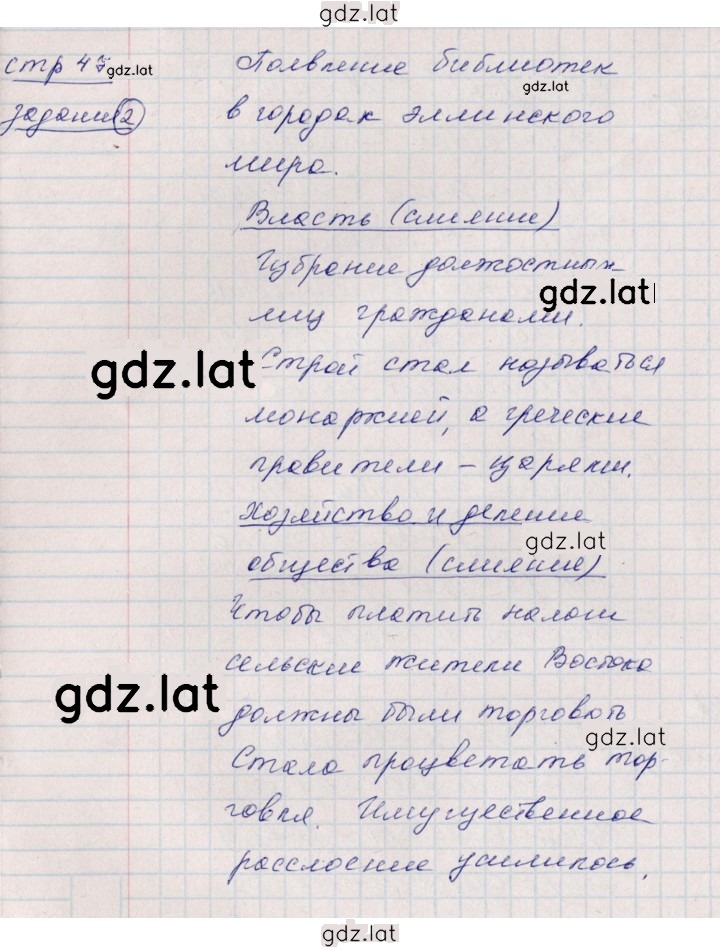 gdz.lat
стр 47
gdz.lat
задание 2
Появление библиотек
gdz.lat
в городах эллинского
мира.
Власть (слияние)
Избрание должостных
gdz.lat
лиц гражданами.
gdz.lat
Строй стал называться
монархией, а греческие
правители – царями.
Хозяйство и деление
gdz.lat
общества (слияние)
Чтобы платить налоги
сельские жители Востока
gdz.lat
должны были торговать
gdz.lat
Стала процветать тор-
говля. Имущественное
расслоение усилилось.
gdz.lat